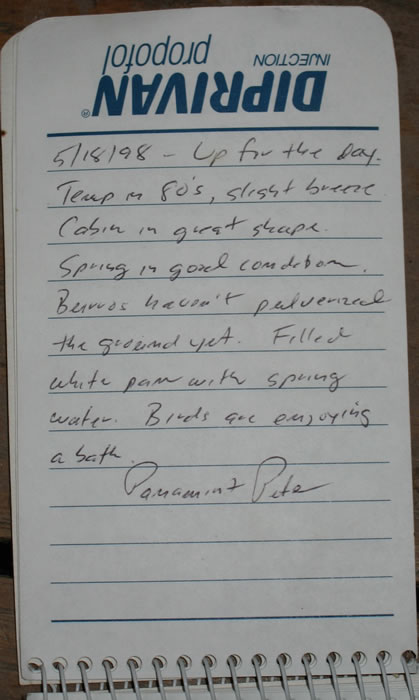 DIPRIVAN®
INJECTION
propofol
5/18/98 - Up for the day.
Temp in 80's, slight breeze
Cabin in great shape.
Spring in good condition.
Burros haven't pulverized
the ground yet. Filled
white pan with spring
water. Birds are enjoying
a bath.
Panamint Pete